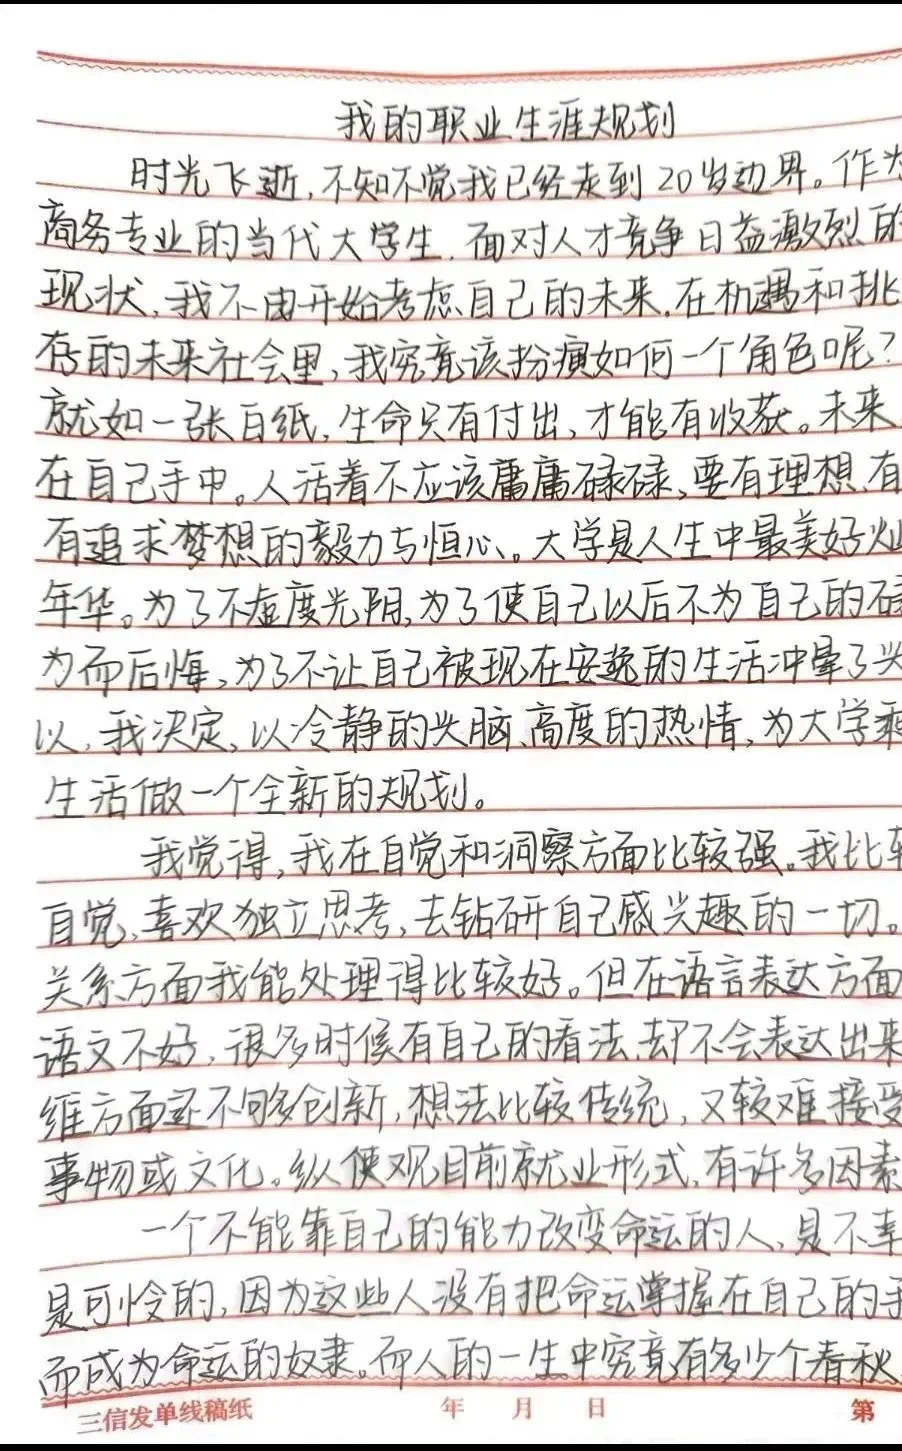 我的职业生涯规划
时光飞逝,不知不觉我已经走到20岁边界。作为
商务专业的当代大学生.面对人才竞争日益激烈的
现状,我不由开始考虑自己的未来.在机遇和挑
存的未来社会里,我究竟该扮演如何一个角色呢?
就如一张白纸,生命只有付出,才能有收获。未来
在自己手中。人活着不应该庸庸碌碌,要有理想.有
有追求梦想的毅力与恒心。大学是人生中最美好灿
年华。为了不虚度光阴,为了使自己以后不为自己的碌
为而后悔,为了不让自己被现在安逸的生活冲晕了头
以,我决定,以冷静的头脑、高度的热情,为大学剩
生活做一个全新的规划。
我觉得,我在自觉和洞察方面比较强。我比较
自觉,喜欢独立思考,去钻研自己感兴趣的一切。
关系方面我能处理得比较好。但在语言表达方面
语文不好,很多时候有自己的看法.却不会表达出来
维方面还不够创新,想法比较传统,又较难接受
事物或文化。纵使观目前就业形式,有许多因素
一个不能靠自己的能力改变命运的人,是不幸
是可怜的,因为这些人没有把命运掌握在自己的手
而成为命运的奴隶。而人的一生中究竟有多少个春秋
三信发单线稿纸 年 月 日 第